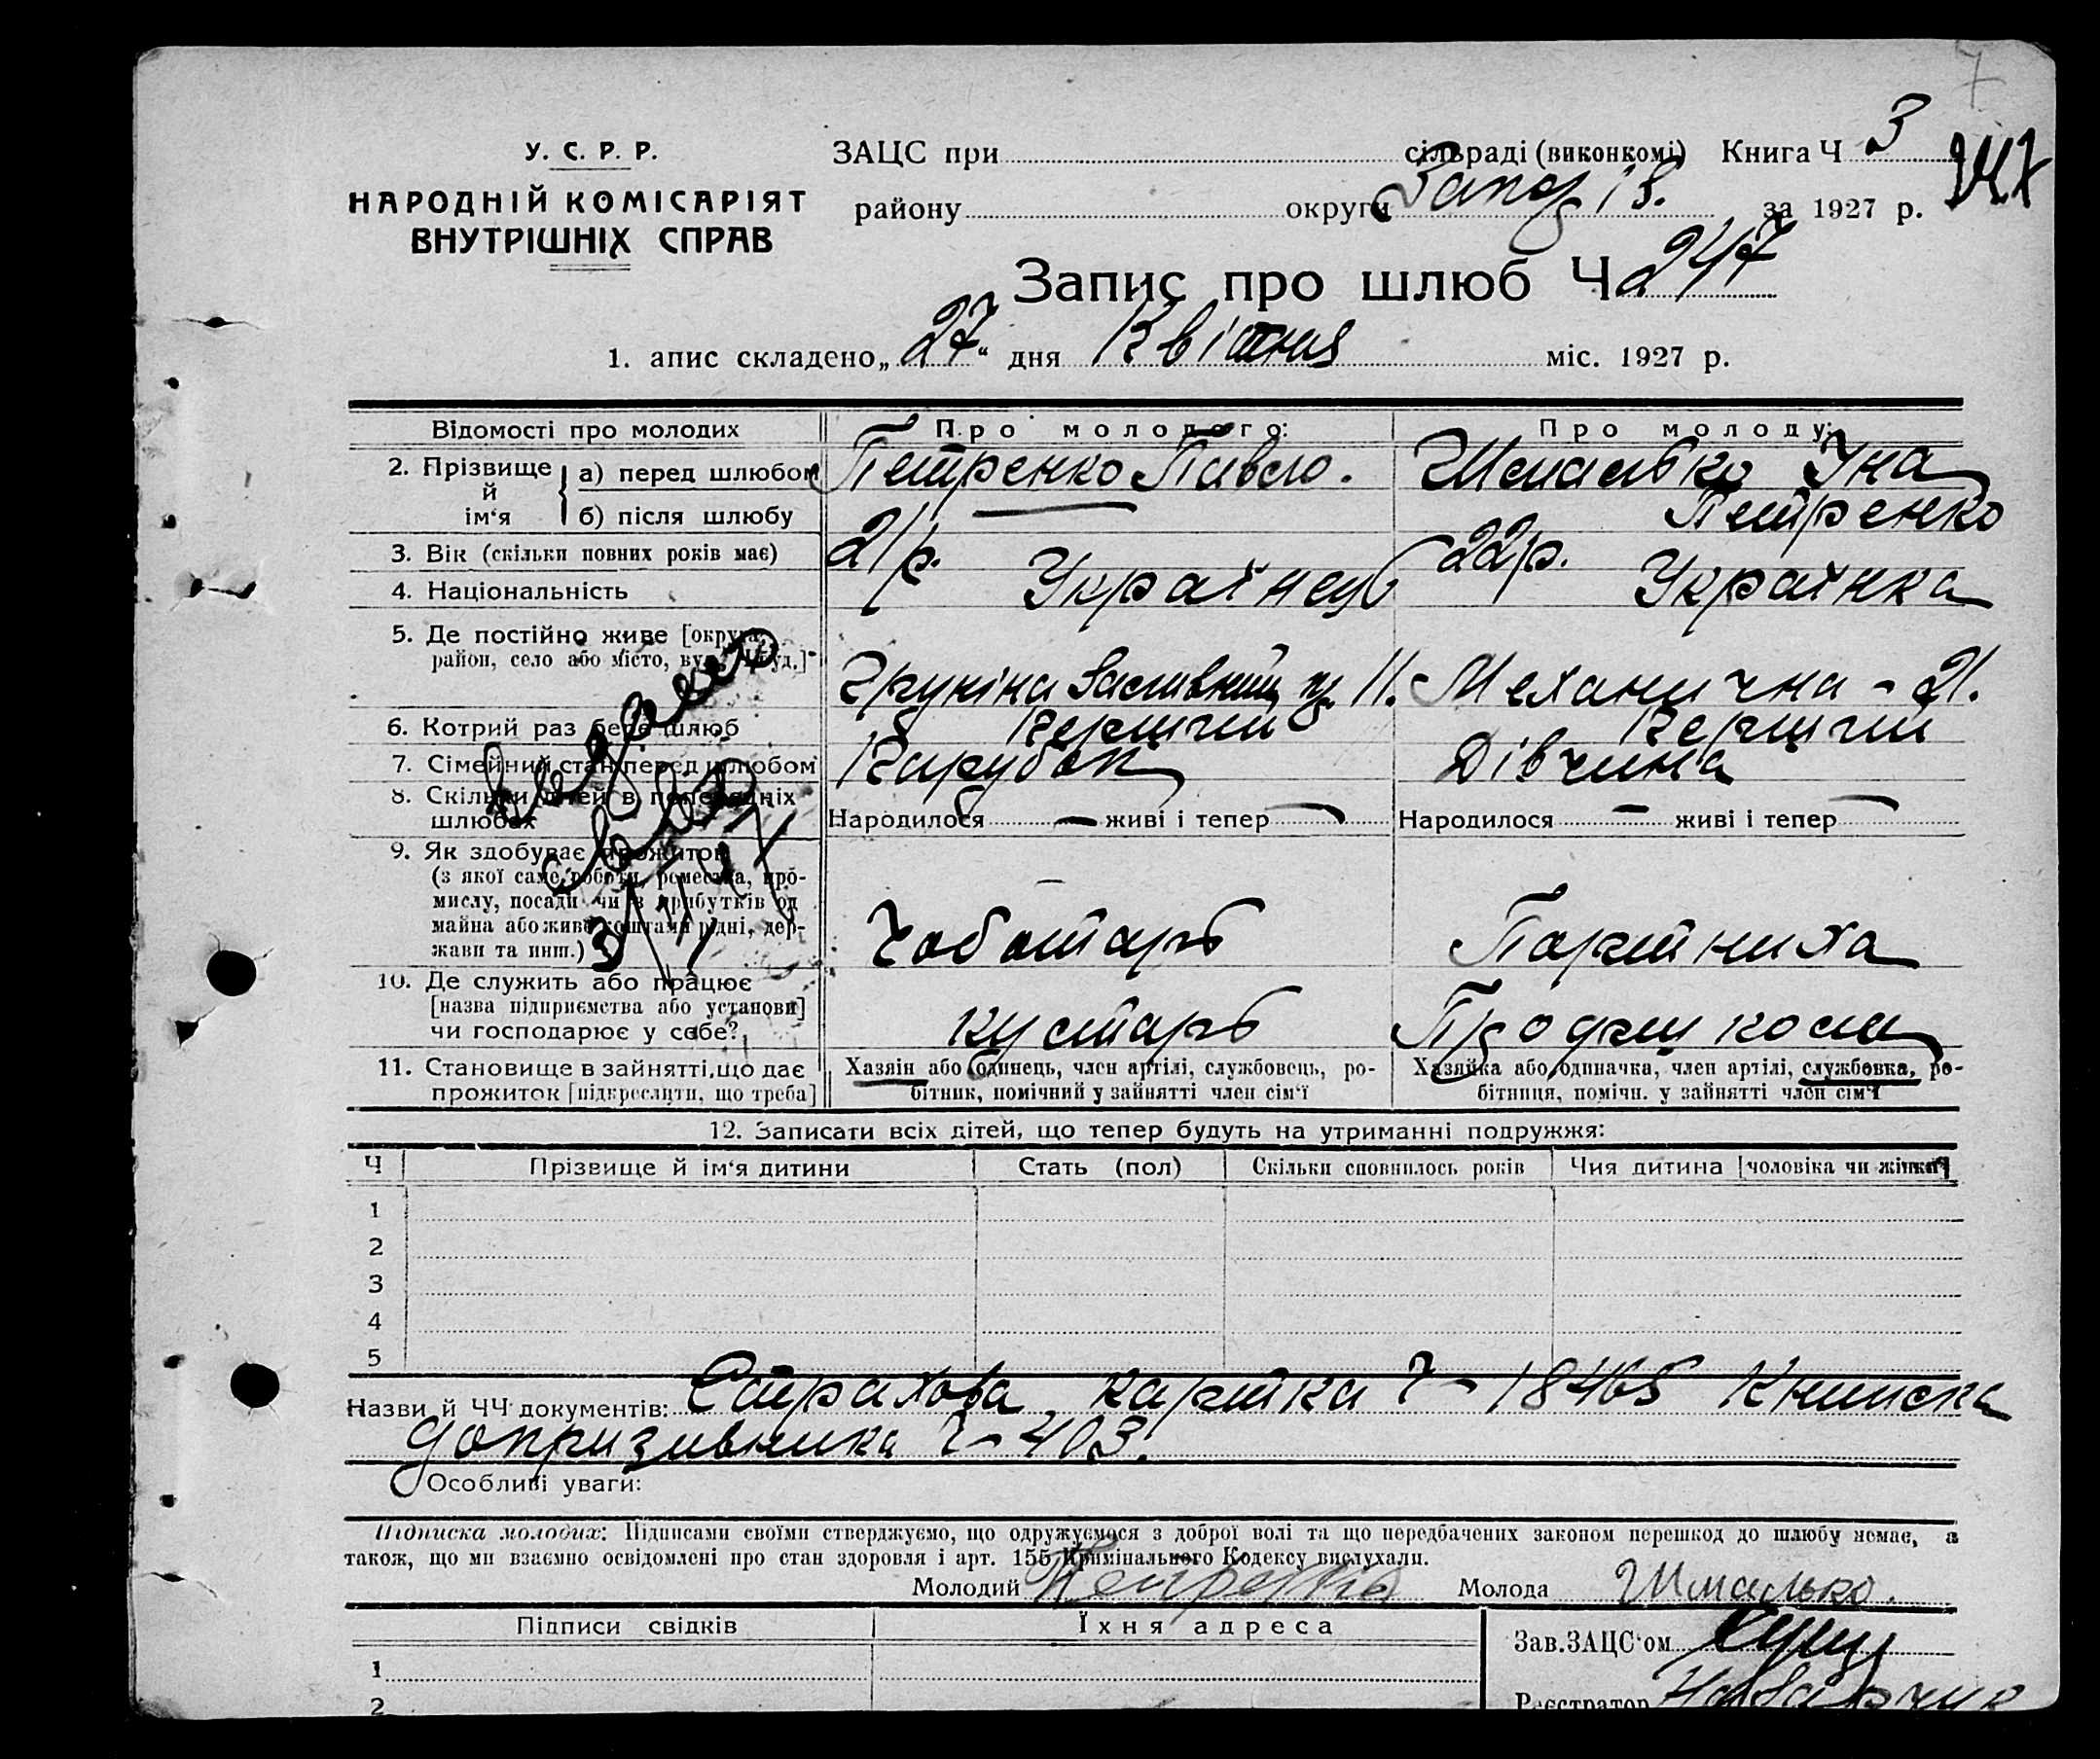 7
У. С. Р. Р.
НАРОДНІЙ КОМІСАРІЯТ
ВНУТРІШНІХ СПРАВ
ЗАЦС при сільраді (виконкомі) Книга Ч 3
247
району округи за 1927 р.
Запис про шлюб Ч 247
1. апис складено „27“ дня Квітня міс. 1927 р.
Відомості про молодих Про молодого: Про молоду:
2. Прізвище й ім‘я а) перед шлюбом Петренко Павло. Шмалько Їна
б) після шлюбу Петренко
3. Вік (скільки повних років має) 21 р. 22 р.
4. Національність Українець Українка
5. Де постійно живе [округа,
район, село або місто, вул., Ч буд.] 11. Механична - 21.
6. Котрий раз бере шлюб Перший Перший
7. Сімейний стан перед шлюбом Парубок Дівчина
8. Скільки дітей в попередніх
шлюбах Народилося — живі і тепер — Народилося — живі і тепер —
9. Як здобуває прожиток
(з якої саме роботи, ремества, про-
мислу, посади чи з прибутків од
майна або живе коштами рідні, дер-
жави та инш.) Чоботарь Портниха
10. Де служить або працює
[назва підприємства або установи]
чи господарює у себе? кустарь
11. Становище в зайнятті, що дає
прожиток [підкреслити, що треба]
Хазяїн або одинець, член артілі, службовець, ро-
бітник, помічний у зайнятті член сім‘ї
Хазяйка або одиначка, член артілі, службовка, ро-
бітниця, помічн. у зайнятті член сім‘ї
12. Записати всіх дітей, що тепер будуть на утриманні подружжя:
Ч Прізвище й ім‘я дитини Стать (пол) Скільки сповнилось років Чия дитина [чоловіка чи жінки]
1
2
3
4
5
Назви й ЧЧ документів: Страхова картка Ч - 18465 Книжка
допризивника Ч - 403.
Особливі уваги:
Підписка молодих: Підписами своїми стверджуємо, що одружуємося з доброї волі та що передбачених законом перешкод до шлюбу немає, а
також, що ми взаємно освідомлені про стан здоровля і арт. 155 Кримінального Кодексу вислухали.
Молодий Петренко Молода Шмалько.
Підписи свідків Їхня адреса Зав. ЗАЦС‘ом
1
Реєстратор
2